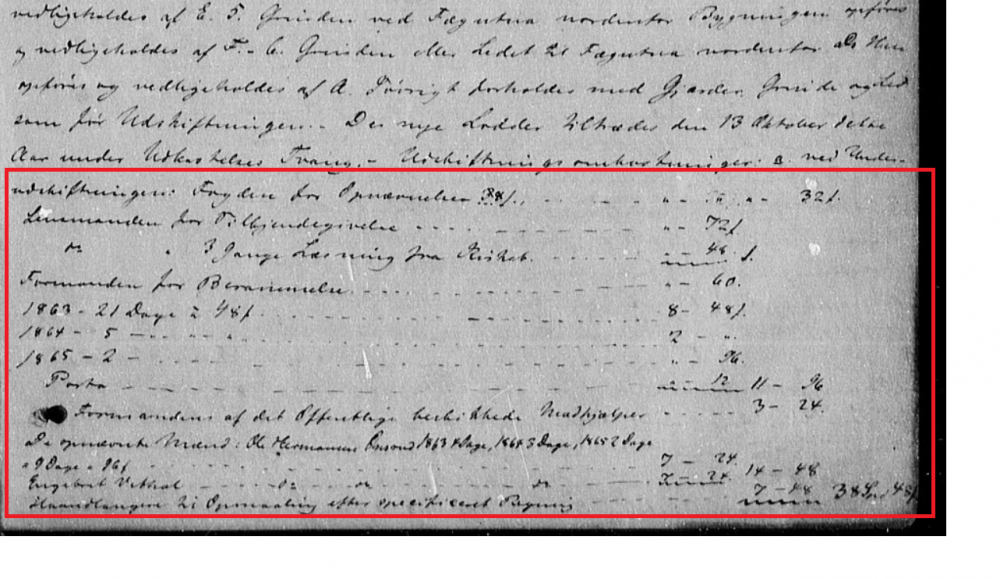 vedligeholdes af E. T. Grinden ved Fægutua nordenfor Bygningen opføres
og vedligeholdes af F. - C. Grinden eller Ledet til Fægutua nordenfor
opføres og vedligeholdes af A. forholdes med Gjærder, Grinde og Led
som før Udskiftningen. - De nye Lodder tiltrædes den 13 Oktober dette
Aar under Udkastelses Tvang. - Udskiftningsomkostninger: a. ved Under-
udskiftningen: Fogden for Opnævnelse - - - 32 f.
Lensmanden for Tilkjendegivelse - - - - „ - 72 f
do „ 3 Gange Læsning fra Kirkeb. - - - „ - 48 f.
Formanden for Berammelse - - - - „ - 60.
1863 - 21 Dage à 48 f. - - - - 8 - 48 f.
1864 - 5 - - - - 2 - „
1865 - 2 - - - - „ - 96.
Porto - - - - „ - 12 11 - 96
Formandens af det Offentlige beskikkede Medhjælper - - - - 3 - 24.
De opnævnte Mænd: Ole Hermansen 1863 4 Dage, 1864 3 Dage, 1865 2 Dage
= 9 Dage à 96 f - - - - 7 - 24
Engebret - - do - - do - - do - - 7 - 24 14 - 48
Haandlangere til Opmaaling efter specificeret Regning - - - 7 - 48 38 Spd 48 f